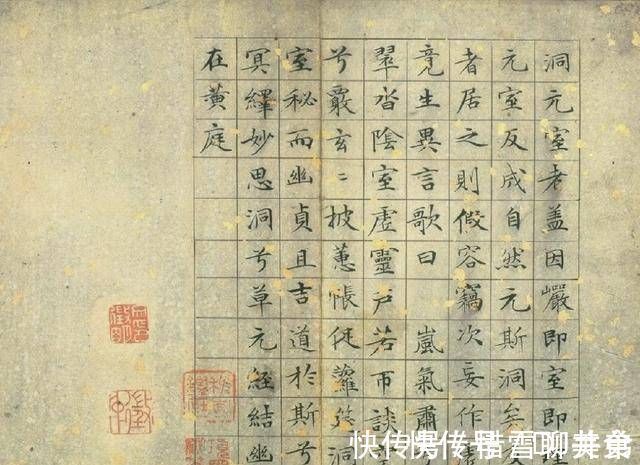 洞元室者蓋因巖即室即
元室反成自然元斯洞矣
者居之則假容竊次妄作
竟生異言歌曰 嵐氣肅
翠沓陰室虛靈户若帀談
兮覈玄〻披蕙帳促蘿筵洞
室秘而幽貞且吉道於斯兮
冥繹妙思洞兮草元經結幽
在黄庭